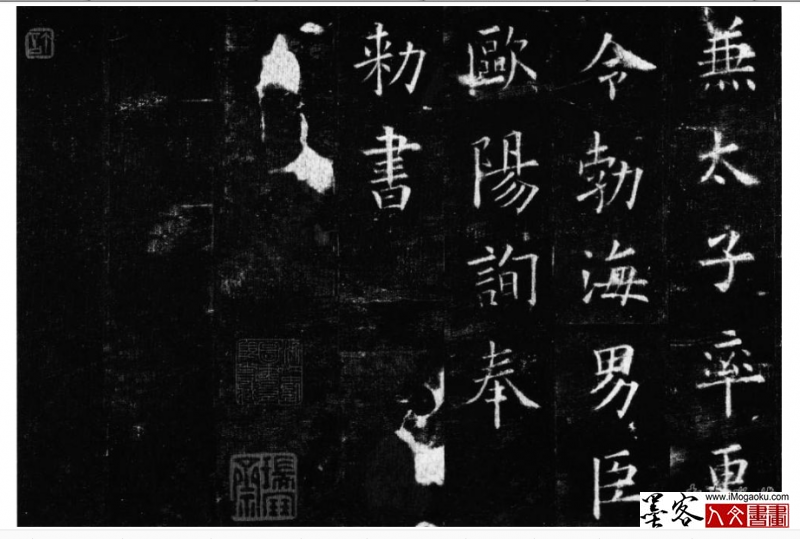 兼太子率更
令勃海男臣
歐陽詢奉
勑書
墨客
www.iMogaoku.com
人文書畫